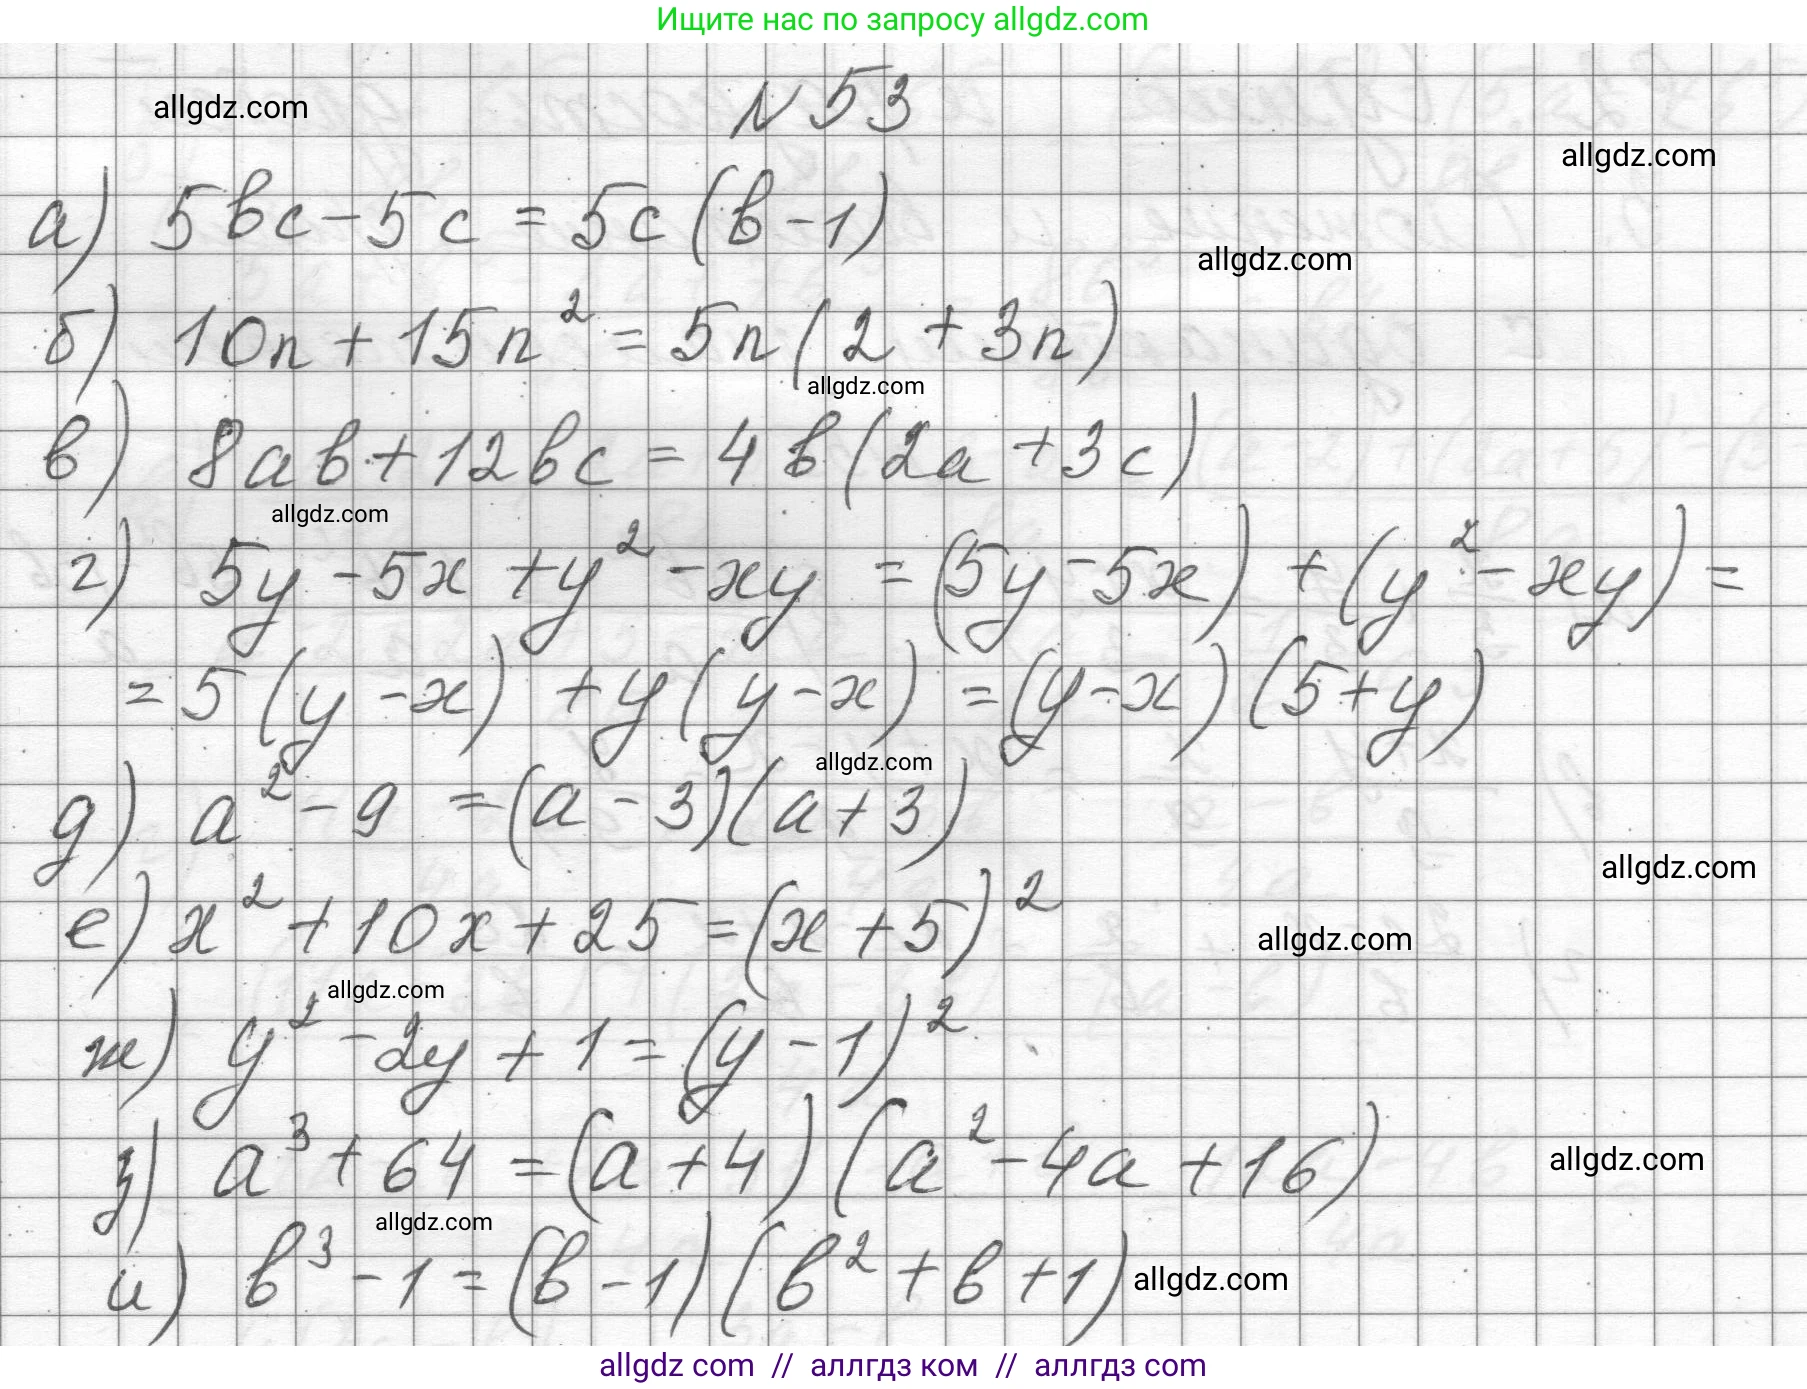 Ищите нас по запросу allgdz.com
allgdz.com
N 53
allgdz.com
а) 5bc - 5c = 5c (b - 1)
allgdz.com
б) 10n + 15n² = 5n (2 + 3n)
allgdz.com
в) 8ab + 12bc = 4b (2a + 3c)
allgdz.com
г) 5y - 5x + y² - xy = (5y - 5x) + (y² - xy) =
= 5 (y - x) + y (y - x) = (y - x) (5 + y)
allgdz.com
д) a² - 9 = (a - 3)(a + 3)
allgdz.com
е) x² + 10x + 25 = (x + 5)²
allgdz.com
allgdz.com
ж) y² - 2y + 1 = (y - 1)²
з) a³ + 64 = (a + 4) (a² - 4a + 16)
allgdz.com
allgdz.com
и) b³ - 1 = (b - 1) (b² + b + 1)
allgdz.com
allgdz com // аллгдз ком // аллгдз com